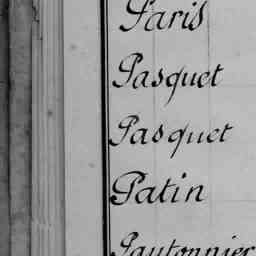 Paris
Pasquet
Pasquet
Patin
Pautonnier